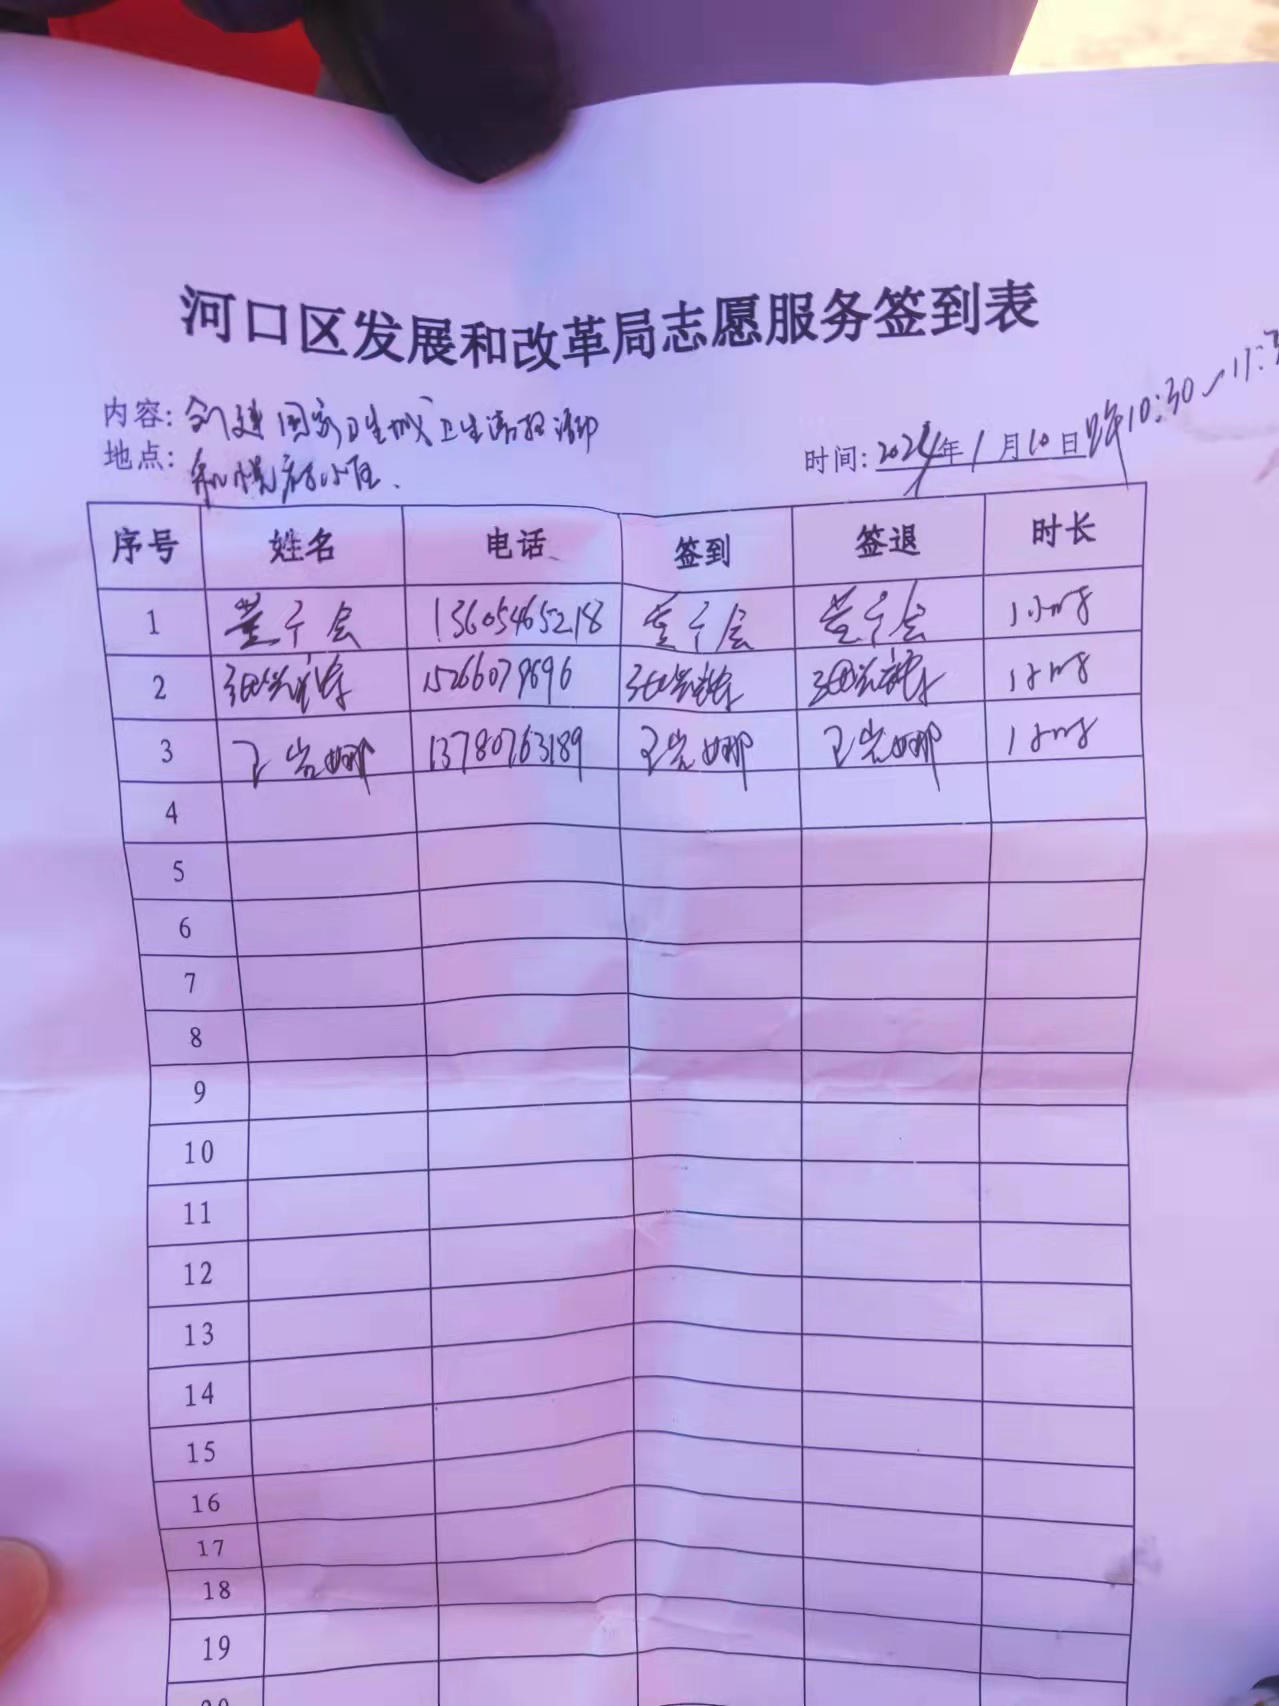 河口区发展和改革局志愿服务签到表
内容: 创建国家卫生城"卫生清扫活动
地点: 和悦府小区.
时间: 2024年1月10日 10:30
序号 姓名 电话 签到 签退 时长
1 董宁会 13605465218 董宁会 董宁会 1小时
2 15266079696 1小时
3 王岩娜 13780763189 王岩娜 王岩娜 1小时
4
5
6
7
8
9
10
11
12
13
14
15
16
17
18
19